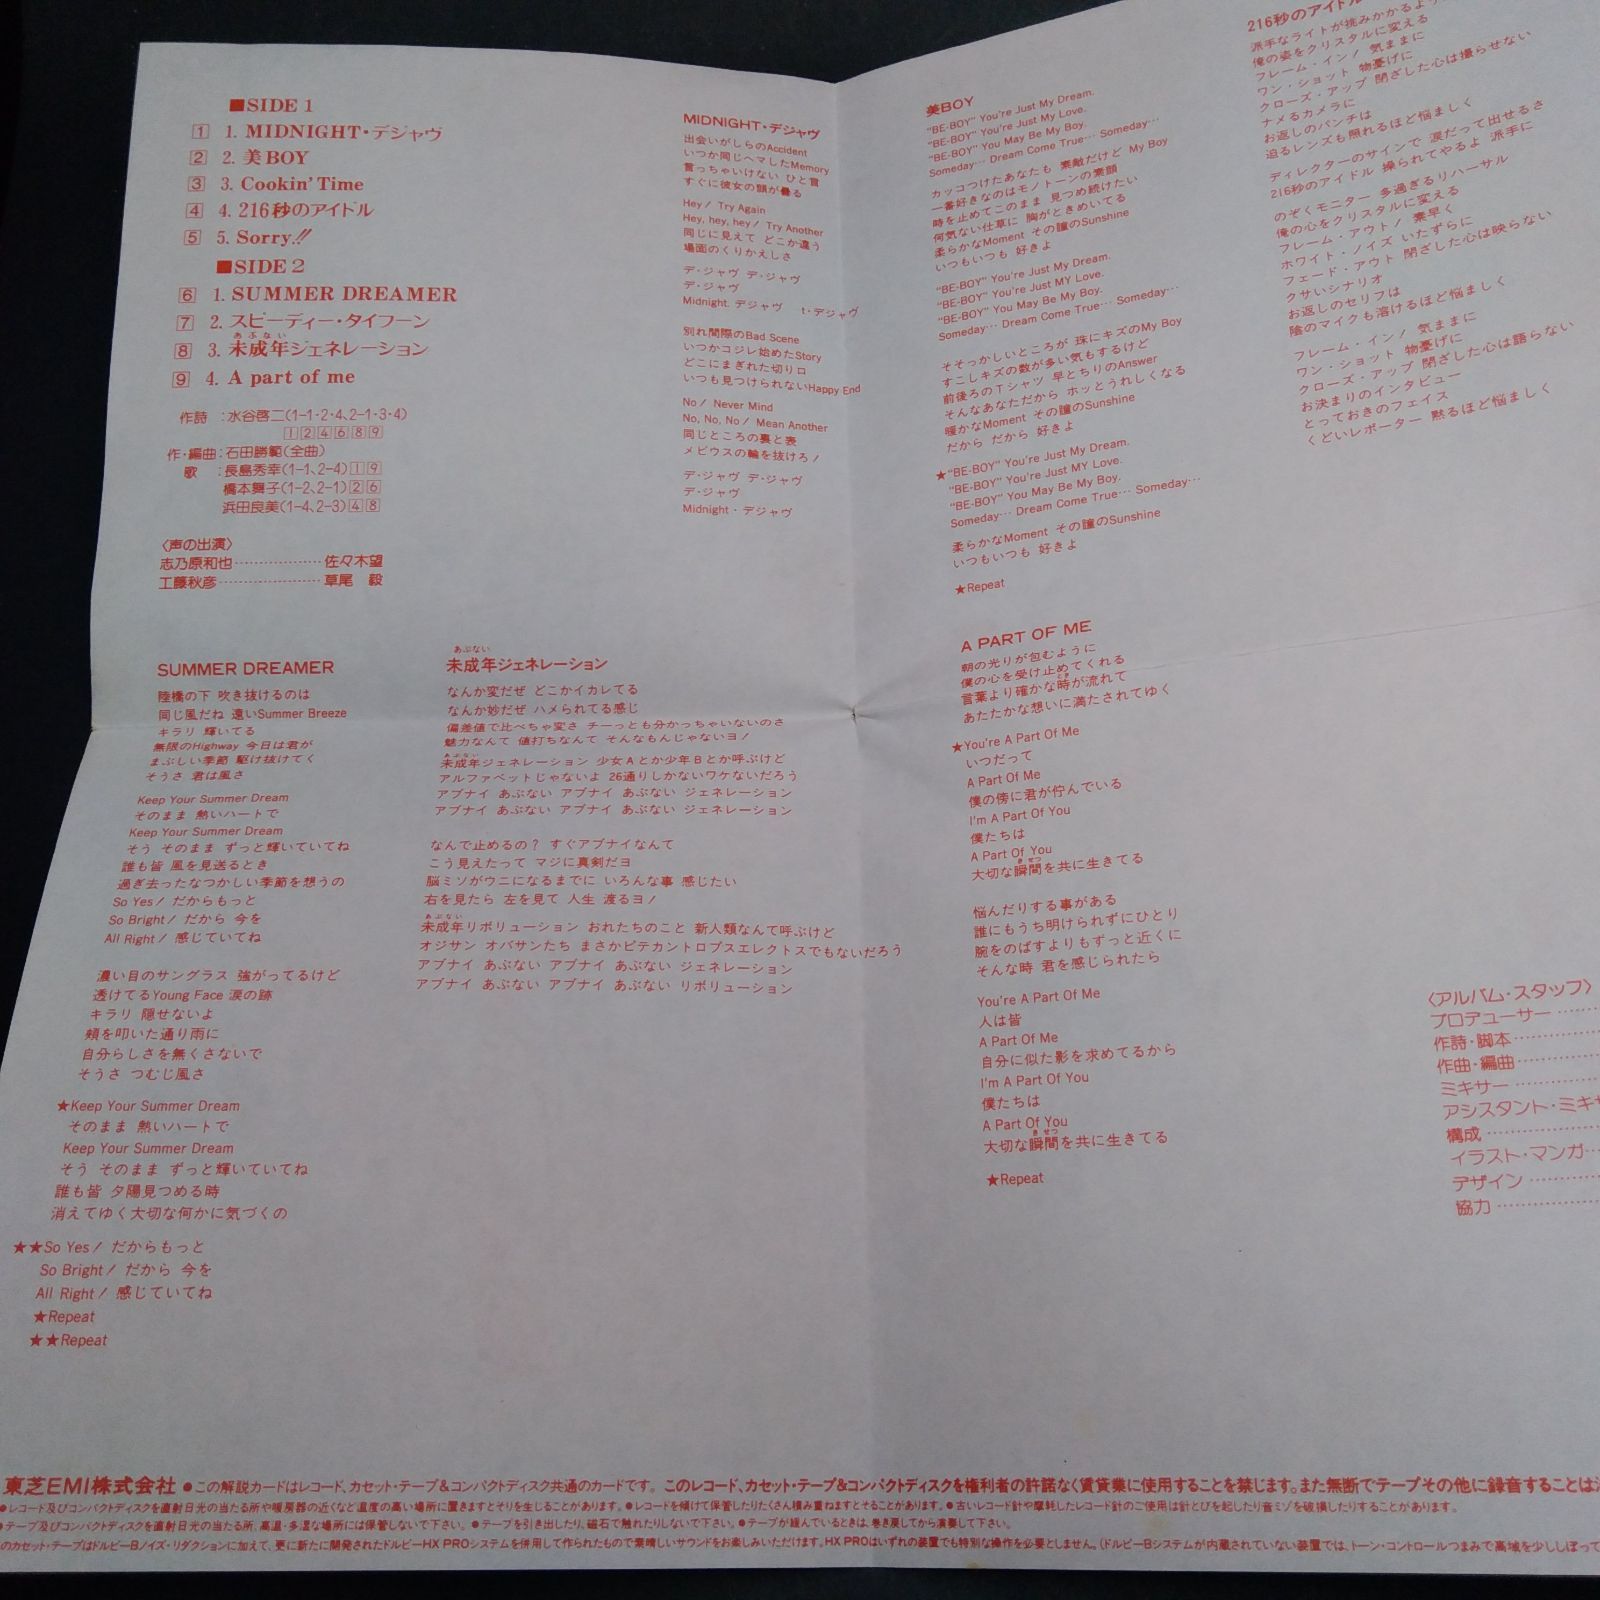 ■SIDE 1
1 1. MIDNIGHT・デジャヴ
2 2. 美BOY
3 3. Cookin' Time
4 4. 216秒のアイドル
5 5. Sorry.!!
■SIDE 2
6 1. SUMMER DREAMER
7 2. スピーディー・タイフーン
あぶない
8 3. 未成年ジェネレーション
9 4. A part of me
作詩 :水谷啓二(1-1・2・4、2-1・3・4)
1 2 4 6 8 9
作・編曲:石田勝範(全曲)
歌 :長島秀幸(1-1、2-4) 1 9
橋本舞子(1-2、2-1) 2 6
浜田良美(1-4、2-3) 4 8
〈声の出演〉
志乃原和也………………佐々木望
工藤秋彦…………………草尾 毅
MIDNIGHT・デジャヴ
出会いがしらのAccident
いつか同じヘマしたMemory
言っちゃいけない ひと言
すぐに彼女の顔が曇る
Hey! Try Again
Hey, hey, hey! Try Another
同じに見えて どこか違う
場面のくりかえしさ
デ・ジャヴ デ・ジャヴ
デ・ジャヴ
Midnight. デジャヴ t・デジャヴ
別れ間際のBad Scene
いつかコジレ始めたStory
どこにまぎれた切り口
いつも見つけられないHappy End
No! Never Mind
No, No, No! Mean Another
同じところの裏と表
メビウスの輪を抜けろ!
デ・ジャヴ デ・ジャヴ
デ・ジャヴ
Midnight・デジャヴ
美BOY
"BE-BOY" You're Just My Dream.
"BE-BOY" You're Just My Love.
"BE-BOY" You May Be My Boy.
Someday… Dream Come True… Someday…
カッコつけたあなたも 素敵だけど My Boy
一番好きなのはモノトーンの素顔
時を止めてこのまま 見つめ続けたい
何気ない仕草に 胸がときめいてる
柔らかなMoment その瞳のSunshine
いつもいつも 好きよ
"BE-BOY" You're Just My Dream.
"BE-BOY" You're Just My Love.
"BE-BOY" You May Be My Boy.
Someday… Dream Come True… Someday…
そそっかしいところが 珠にキズのMy Boy
すこしキズの数が多い気もするけど
前後ろのTシャツ 早とちりのAnswer
そんなあなただから ホッとうれしくなる
暖かなMoment その瞳のSunshine
だから だから 好きよ
★"BE-BOY" You're Just My Dream.
"BE-BOY" You're Just MY Love.
"BE-BOY" You May Be My Boy.
Someday… Dream Come True… Someday…
柔らかなMoment その瞳のSunshine
いつもいつも 好きよ
★Repeat
216秒のアイドル
派手なライトが挑みかかるよう
俺の姿をクリスタルに変える
フレーム・イン! 気ままに
ワン・ショット 物憂げに
クローズ・アップ 閉ざした心は撮らせない
ナメるカメラに
お返しのパンチは
迫るレンズも照れるほど悩ましく
ディレクターのサインで 涙だって出せるさ
216秒のアイドル 操られてやるよ 派手に
のぞくモニター 多過ぎるリハーサル
俺の心をクリスタルに変える
フレーム・アウト! 素早く
ホワイト・ノイズ いたずらに
フェード・アウト 閉ざした心は映らない
クサいシナリオ
お返しのセリフは
陰のマイクも溶けるほど悩ましく
フレーム・イン! 気ままに
ワン・ショット 物憂げに
クローズ・アップ 閉ざした心は語らない
お決まりのインタビュー
とっておきのフェイス
くどいレポーター 黙るほど悩ましく
SUMMER DREAMER
陸橋の下 吹き抜けるのは
同じ風だね 遠いSummer Breeze
キラリ 輝いてる
無限のHighway 今日は君が
まぶしい季節 駆け抜けてく
そうさ 君は風さ
Keep Your Summer Dream
そのまま 熱いハートで
Keep Your Summer Dream
そう そのまま ずっと輝いていてね
誰も皆 風を見送るとき
過ぎ去ったなつかしい季節を想うの
So Yes! だからもっと
So Bright! だから 今を
All Right! 感じていてね
濃い目のサングラス 強がってるけど
透けてるYoung Face 涙の跡
キラリ 隠せないよ
頬を叩いた通り雨に
自分らしさを無くさないで
そうさ つむじ風さ
★Keep Your Summer Dream
そのまま 熱いハートで
Keep Your Summer Dream
そう そのまま ずっと輝いていてね
誰も皆 夕陽見つめる時
消えてゆく大切な何かに気づくの
★★So Yes! だからもっと
So Bright! だから 今を
All Right! 感じていてね
★Repeat
★★Repeat
あぶない
未成年ジェネレーション
なんか変だぜ どこかイカレてる
なんか妙だぜ ハメられてる感じ
偏差値で比べちゃ変さ チーっとも分かっちゃいないのさ
魅力なんて 値打ちなんて そんなもんじゃないヨ!
あぶない
未成年ジェネレーション 少女Aとか少年Bとか呼ぶけど
アルファベットじゃないよ 26通りしかないワケないだろう
アブナイ あぶない アブナイ あぶない ジェネレーション
アブナイ あぶない アブナイ あぶない ジェネレーション
なんで止めるの? すぐアブナイなんて
こう見えたって マジに真剣だヨ
脳ミソがウニになるまでに いろんな事 感じたい
右を見たら 左を見て 人生 渡るヨ!
あぶない
未成年リボリューション おれたちのこと 新人類なんて呼ぶけど
オジサン オバサンたち まさかピテカントロプスエレクトスでもないだろう
アブナイ あぶない アブナイ あぶない ジェネレーション
アブナイ あぶない アブナイ あぶない リボリューション
A PART OF ME
朝の光りが包むように
僕の心を受け止めてくれる
とき
言葉より確かな時が流れて
あたたかな想いに満たされてゆく
★You're A Part Of Me
いつだって
A Part Of Me
僕の傍に君が佇んでいる
I'm A Part Of You
僕たちは
A Part Of You
きせつ
大切な瞬間を共に生きてる
悩んだりする事がある
誰にもうち明けられずにひとり
腕をのばすよりもずっと近くに
そんな時 君を感じられたら
You're A Part Of Me
人は皆
A Part Of Me
自分に似た影を求めてるから
I'm A Part Of You
僕たちは
A Part Of You
きせつ
大切な瞬間を共に生きてる
★Repeat
〈アルバム・スタッフ〉
プロデューサー
作詩・脚本
作曲・編曲
ミキサー
アシスタント・ミキサ
構成
イラスト・マンガ
デザイン
協力
東芝EMI株式会社 ●この解説カードはレコード、カセット・テープ&コンパクトディスク共通のカードです。 このレコード、カセット・テープ&コンパクトディスクを権利者の許諾なく賃貸業に使用することを禁じます。また無断でテープその他に録音することは
●レコード及びコンパクトディスクを直射日光の当たる所や暖房器の近くなど温度の高い場所に置きますとそりを生じることがあります。●レコードを傾けて保管したりたくさん積み重ねますとそることがあります。●古いレコード針や摩耗したレコード針のご使用は針とびを起したり音ミゾを破損したりすることがあります。
●テープ及びコンパクトディスクを直射日光の当たる所、高温・多湿な場所には保管しないで下さい。●テープを引き出したり、磁石で触れたりしないで下さい。●テープが緩んでいるときは、巻き戻してから演奏して下さい。
のカセット・テープはドルビーBノイズ・リダクションに加えて、更に新たに開発されたドルビーHX PROシステムを併用して作られたもので素晴しいサウンドをお楽しみいただけます。HX PROはいずれの装置でも特別な操作を必要としません。(ドルビーBシステムが内蔵されていない装置では、トーン・コントロールつまみで高域を少ししぼって